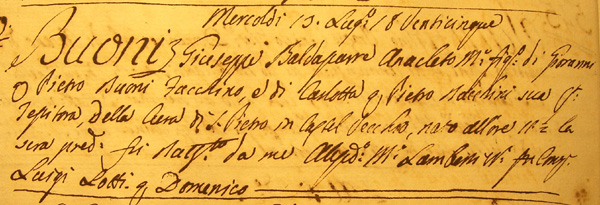 Mercoldi 13. Lug.º 18 Venticinque
Buoni Giuseppe Baldassarre Anacleto M.ª fig.º di Giovanni
q Pietro Buoni Facchino, e di Carlotta q Pietro Stacchini sua
Tessitora, della Cura di S. Pietro in Castel Vecchio, nato all'ore
sera pred.ª fu Batt.to da me Aless.º M.ª Lambetti
Luigi Lotti q Domenico